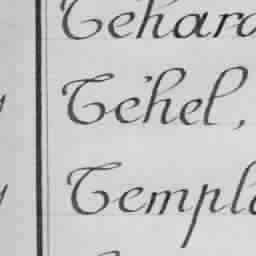 Tehard
Te'hel,
Temple